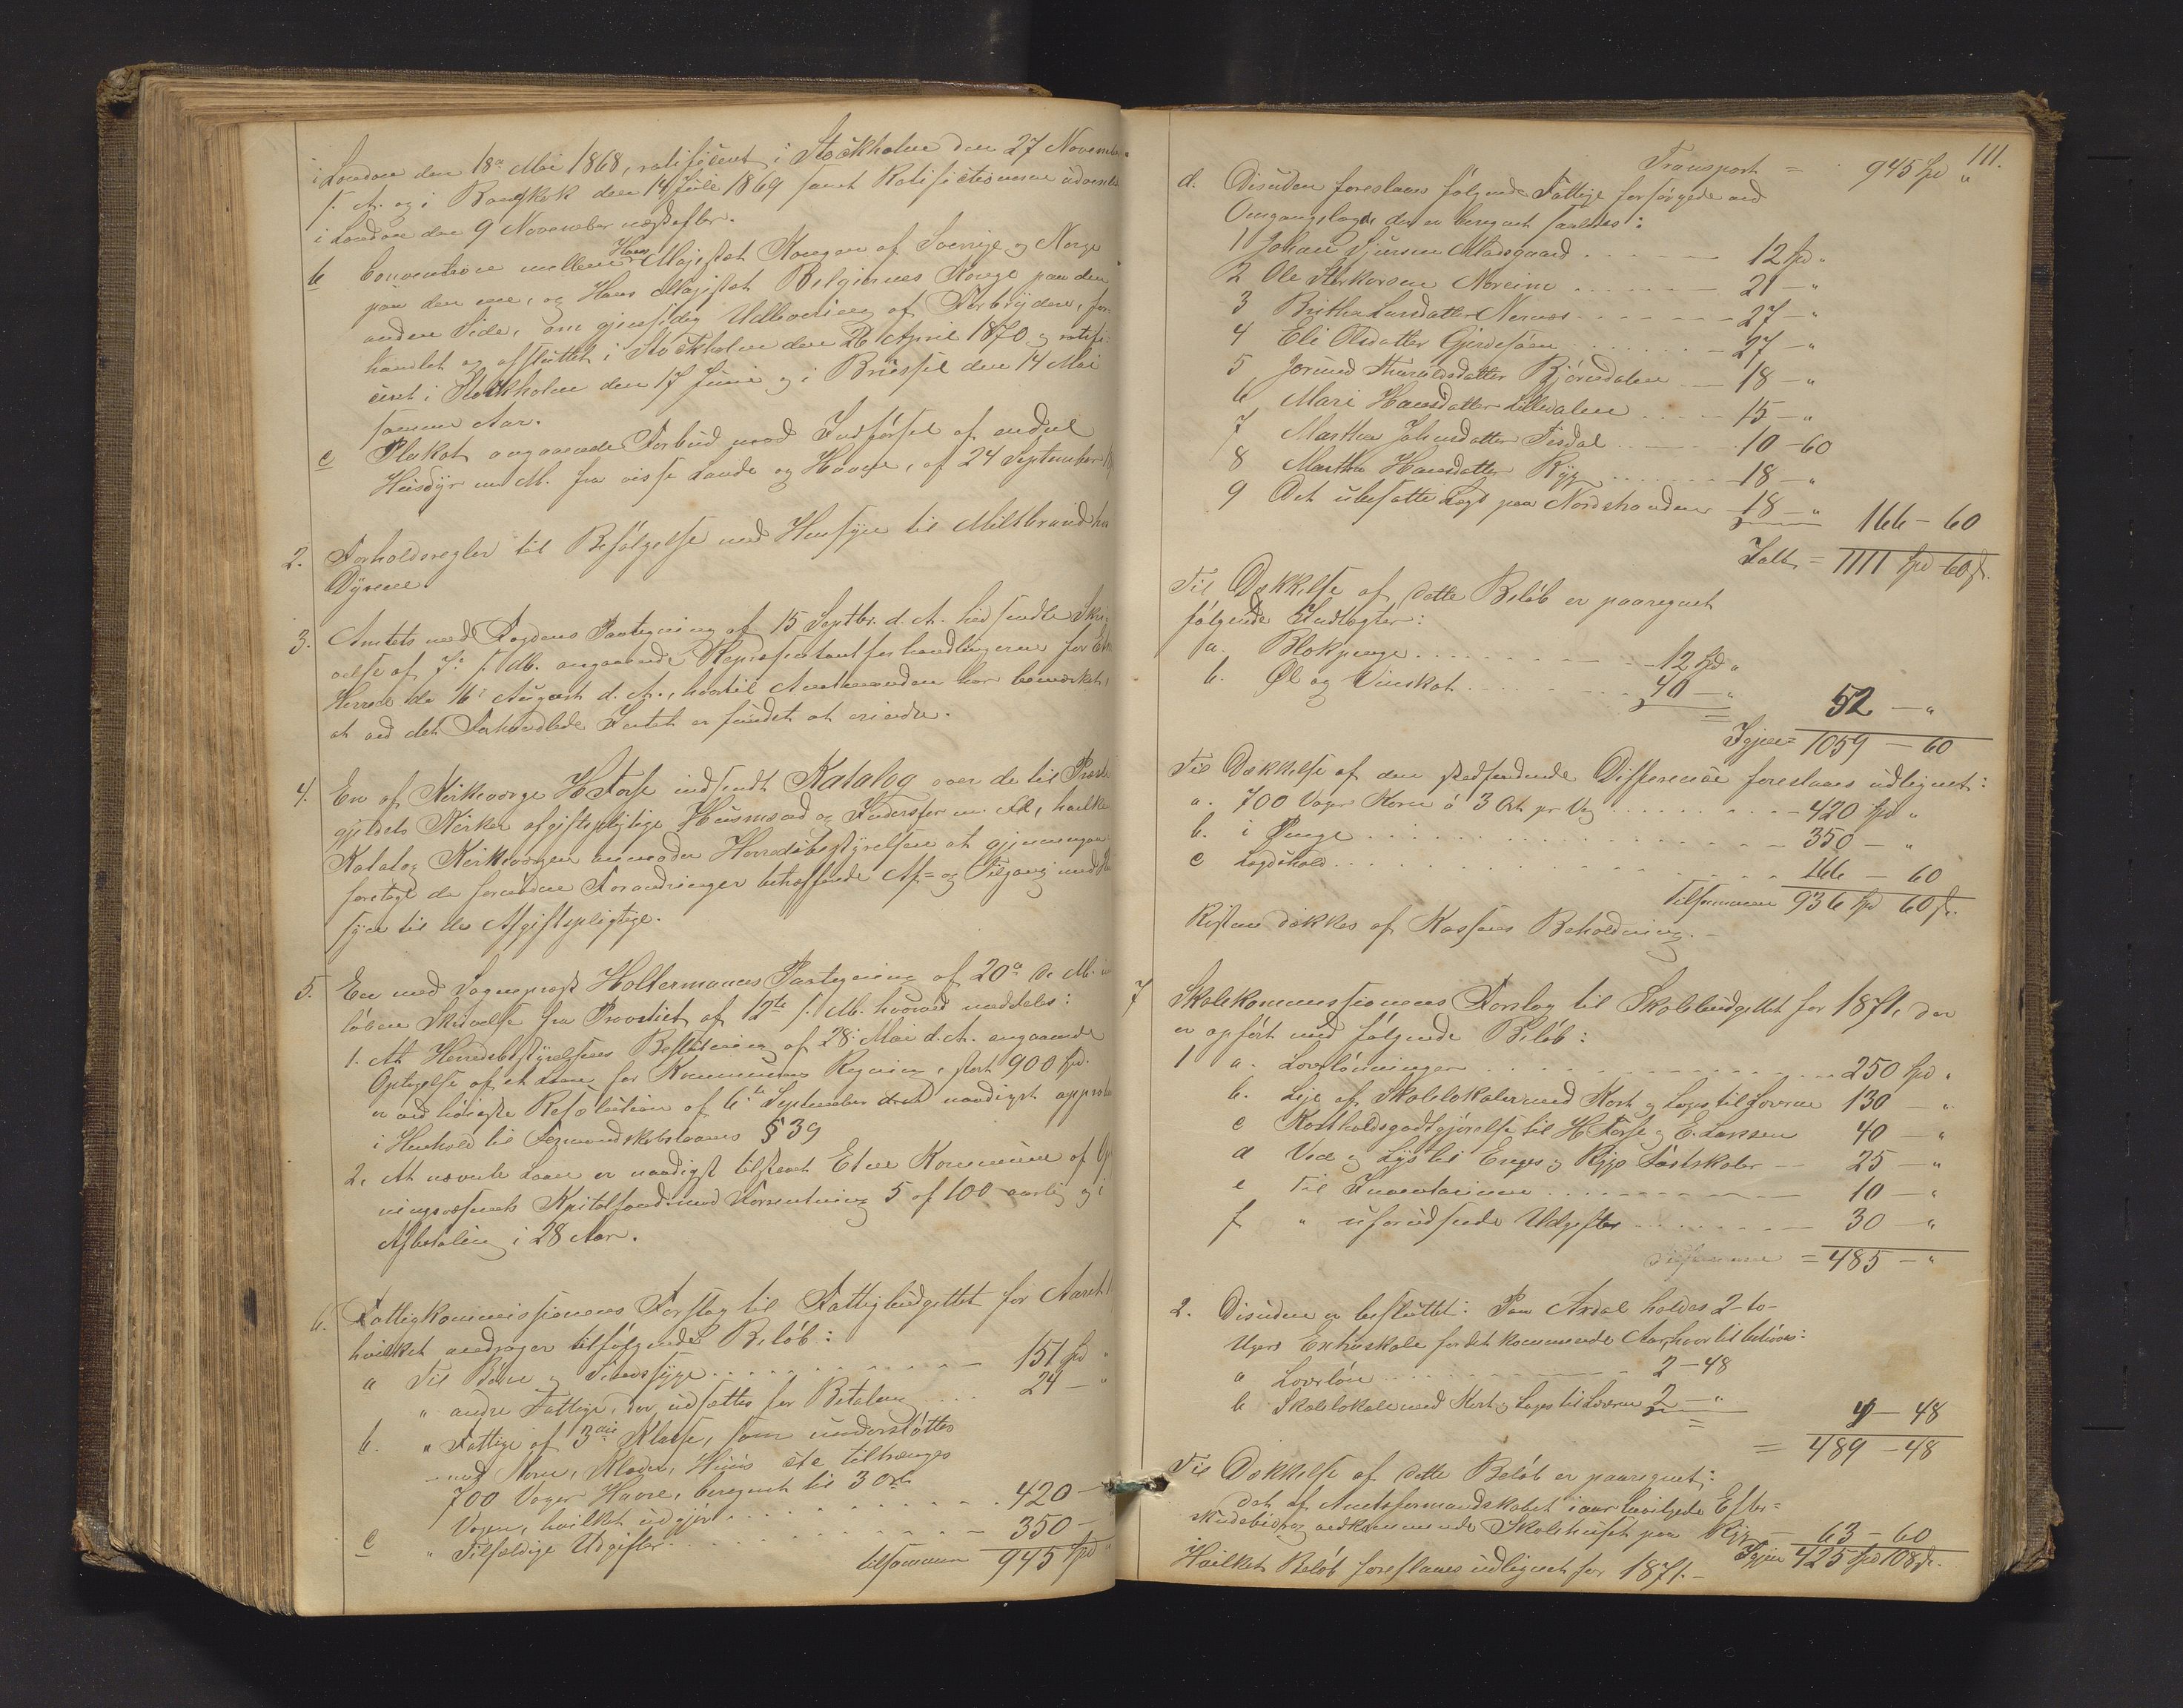 i London den 18de Mai 1868, ratificeret i Stockholm den 27 Novemb
f. A. og i Bangkok den 14 Juli 1869 samt Ratifictionerne
i London den 9 November næstefter.
b Convention mellem Hans Majestæt Kongen af Sverige og Norge
paa den ene, og Hans Majestæt Belgiernes Konge paa den
anden Side, om gjensidig Udlevering af Forbrydere, for-
handlet og afsluttet i Stockholm den 26 April 1870 og ratifi-
ceret i Stockholm den 17 Juni og i Brüssel den 14 Mai
samme Aar.
c Plakat angaaende Forbud mod Indførsel af endel
Huusdyr m. M. fra visse Lande og Havne, af 24 September
2. Forholdsregler til Befølgelse med Hensyn til Miltbrand hos
Dyrene.
3. Amtets med Fogdens Paategning af 15 Septbr. d. A. hidsendte Skri-
velse af 7de s. M. angaaende Repræsentantforhandlingerne for Etne
Herred de 16de August d. A., hvortil Amtmanden har bemærket,
at ved det Forhandlede Intet er fundet at erindre.
4. En af Kirkeværge H Torse indsendt Katalog over de til Præste-
gjeldets Kirker afgiftspligtige Huusmænd og Inderster m. Fl., hvilken
Katalog Kirkeværgen anmoder Herredsbestyrelsen at gjennemgaa
foretage de fornødne Forandringer betræffende Af- og Tilgang med Hen
syn til de Afgiftspligtige.
5. En med Sogneprest Holtermanns Paategning af 20de d. M.
løben Skrivelse fra Provstiet af 12te s. M. hvorved meddeles:
1. At Herredsbestyrelsens Beslutning af 28de Mai d. A. angaaende
Optagelse af et Laan for Kommunens Regning, stort 900 Spd.
er ved høieste Resolution af 6te September naadigst appro
i Henhold til Formandskabslovens § 39
2, At nævnte Laan er naadigst tilstaaet Etne Kommune af Op
ningsvæsenets Kapitalfond mod Forrentning 5 af 100 aarlig og
Afbetaling i 28 Aar.
6. Fattigkommissionens Forslag til Fattigbudgettet for Aaret
hvilket andrager til følgende Beløb:
a Til Børn og Sindssyge 151 Spd "
" andre Fattige, der udsættes for Betaling 24 — "
b. " Fattige af 3die Klasse, som understøttes
med Korn, Klæder, Huus etc tiltrænges
700 Voger Havre, beregnet til 3 Ort
Vogen, hvilket udgjør 420 —
c " Tilfældige Udgifter 350 —
tilsammen 945 Spd "
111.
Transport = 945 Spd "
d. Desuden foreslaaes følgende Fattige forsørgede ved
Omgangslægd, der er beregnet saaledes:
1 Johan Sjursen Mosgaard 12 Spd "
2 Ole Størkorsen Noreim 21 — "
3 Britha Larsdatter Nernæs 27 — "
4 Eli Olsdatter Gjerdesøen 27 — "
5 Jorund Haraldsdatter Bjørndalen 18 — "
6 Mari Hansdatter Lilledalen 15 — "
7 Martha Johnsdatter Tesdal 10 — 60
8 Martha Hansdatter Ryg 18 — "
9 Det ubesatte Lægd paa Nordstranden 18 — "
166 — 60
Ialt = 1111 Spd 60 s.
Til Dækkelse af dette Beløb er paaregnet
følgende Indtægter:
a. Blokpenge 12 Spd "
b. Øl og Vinskat 40 — "
= 52 — "
Igjen = 1059 — 60
Til Dækkelse af den stedfindende Difference foreslaaes udlignet:
a. 700 Voger Korn á 3 Ort pr Vog 420 Spd "
b. i Penge 350 — "
c Lægdshold 166 — 60
tilsammen 936 Spd 60 s.
Resten dækkes af Kassens Beholdning.
7 Skolekommissionens Forslag til Skolebudgettet for 1871, der
er opført med følgende Beløb:
1 a. Lærerlønninger 250 Spd "
b. Leje af Skolelokaler med Kost og Logis til Læreren 130 — "
c Kostholdsgodtgjørelse til H Torse og E. Larssen 40 — "
d Ved og Lys til Enges og Rygs Fastskoler 25 — "
e Til Inventarium 10 — "
f " uforudseede Udgifter 30 — "
Tilsammen = 485 — "
2. Desuden er besluttet: Paa Axdal holdes 2-to-
Ugers Extraskole for det kommende Aar, hvortil behøves:
a Lærerløn 2 — 48
b Skolelokale med Kost og Logis til Læreren 2 — "
= 4 — 48
= 489 — 48
Til Dækkelse af dette Beløb er paaregnet:
det af Amtsformandskabet i aar bevilgede Efter-
skudsbidrag vedkommende Skolehuset paa Ryg 63 — 60
Igjen 425 Spd 108 s.
Hvilket Beløb foreslaaes udlignet for 1871.